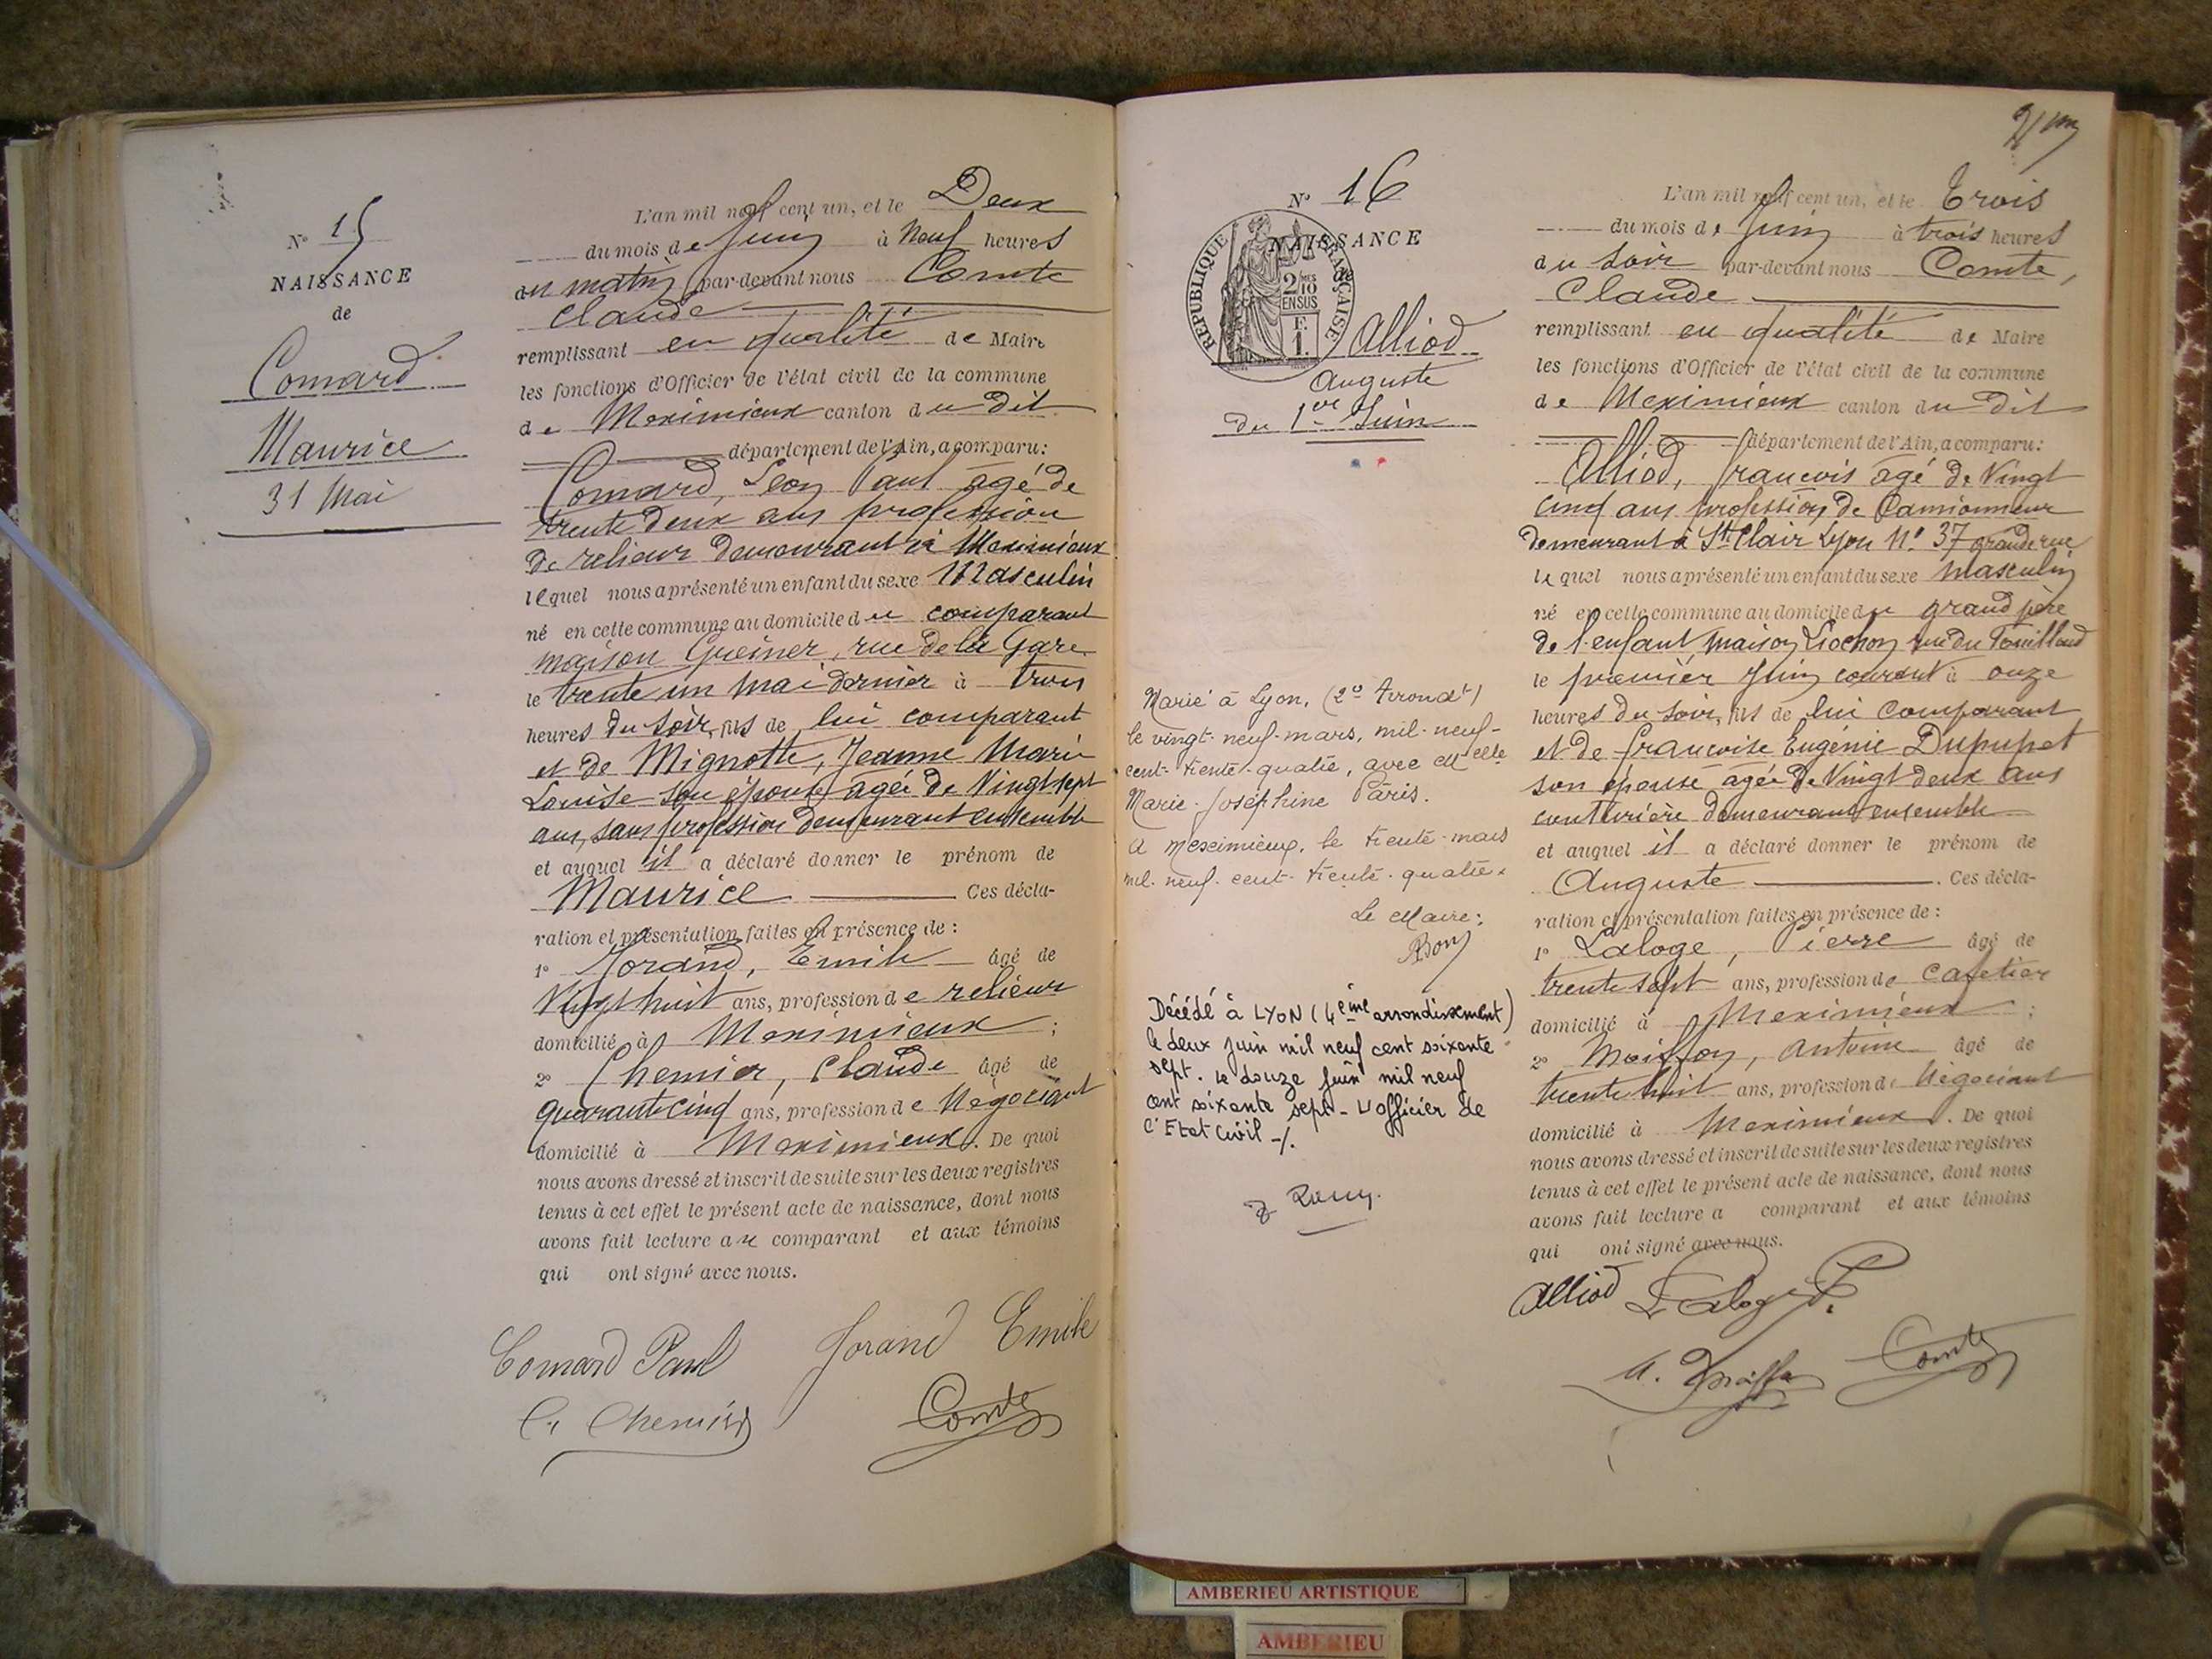 N° 15
NAISSANCE
de
Comard
Maurice
31 Mai
L'an mil neuf cent un, et le Deux
du mois de Juin à Neuf heures
du matin par-devant nous Comte
Claude
remplissant en qualité de Maire
les fonctions d'Officier de l'état civil de la commune
de Meximieux canton du dit
département de l'Ain, a comparu:
Comard, Léon Paul âgé de
trente deux ans profession
de relieur demeurant à Meximieux
lequel nous a présenté un enfant du sexe Masculin
né en cette commune au domicile du comparant
maison Greiner, rue de la Gare
le trente un mai dernier à trois
heures du soir, fils de lui comparant
et de Mignotte, Jeanne Marie
Louise son épouse âgée de Vingt sept
ans, sans profession demeurant ensemble
et auquel il a déclaré donner le prénom de
Maurice Ces décla-
ration et présentation faites en présence de :
1° Jorand, Emile âgé de
Vingt huit ans, profession de relieur
domicilié à Meximieux ;
2° Chemier, Claude âgé de
quarante cinq ans, profession de Négociant
domicilié à Meximieux. De quoi
nous avons dressé et inscrit de suite sur les deux registres
tenus à cet effet le présent acte de naissance, dont nous
avons fait lecture au comparant et aux témoins
qui ont signé avec nous.
Comard Paul Jorand Emile
C. Chemier Comte
N° 16
NAISSANCE
RÉPUBLIQUE FRANÇAISE
2 MES
10
EN SUS
F.
1.
Alliod
Auguste
du 1er Juin
Marié à Lyon, (2e Arrondt)
le vingt-neuf-mars, mil-neuf-
cent-trente-quatre, avec Melle
Marie-Joséphine Pâris.
A Meximieux, le trente-mars
mil-neuf-cent-trente-quatre.
Le Maire:
Décédé à LYON (4ème arrondissement)
le deux juin mil neuf cent soixante
sept. Le douze juin mil neuf
cent soixante sept - L'officier de
l'Etat Civil -/.
L'an mil neuf cent un, et le Trois
du mois de Juin à trois heures
du soir par-devant nous Comte,
Claude
remplissant en qualité de Maire
les fonctions d'Officier de l'état civil de la commune
de Meximieux canton du dit
département de l'Ain, a comparu:
Alliod, françois âgé de Vingt
cinq ans profession de Camionneur
demeurant à St Clair Lyon N° 37 grande rue
lequel nous a présenté un enfant du sexe masculin
né en cette commune au domicile du grand père
de l'enfant, maison Liochon rue du
le premier Juin courant à onze
heures du soir, fils de lui comparant
et de françoise Eugénie Dupupet
son épouse âgée de Vingt deux ans
couturière demeurant ensemble
et auquel il a déclaré donner le prénom de
Auguste. Ces décla-
ration et présentation faites en présence de :
1° Laloge, Pierre âgé de
trente sept ans, profession de Cafetier
domicilié à Meximieux ;
2° Moisson, Antoine âgé de
trente huit ans, profession de Négociant
domicilié à Meximieux. De quoi
nous avons dressé et inscrit de suite sur les deux registres
tenus à cet effet le présent acte de naissance, dont nous
avons fait lecture a comparant et aux témoins
qui ont signé avec nous.
Alliod Laloge P.
Comte
AMBERIEU ARTISTIQUE
AMBERIEU